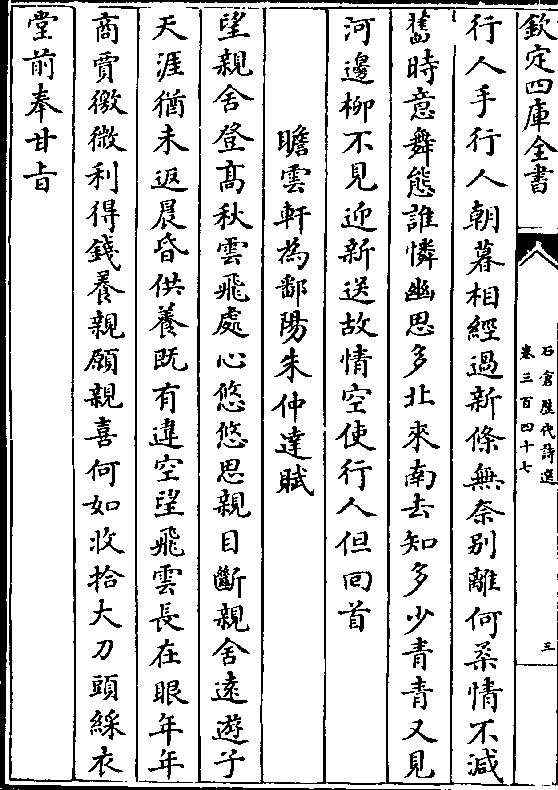 欽定四庫全書
石倉歷代詩選
卷三百四十七
三
行人手行人朝暮相經過新條無奈别離何柔情不減
舊時意舞態誰憐幽思多北來南去知多少青青又見
河邊柳不見迎新送故情空使行人但回首
瞻雲軒為鄱陽朱仲達賦
望親舍登髙秋雲飛處心悠悠思親目斷親舍逺遊子
天涯猶未返晨昏供養既有違空望飛雲長在眼年年
商賈徼微利得錢養親願親喜何如收拾大刀頭綵衣
堂前奉甘旨